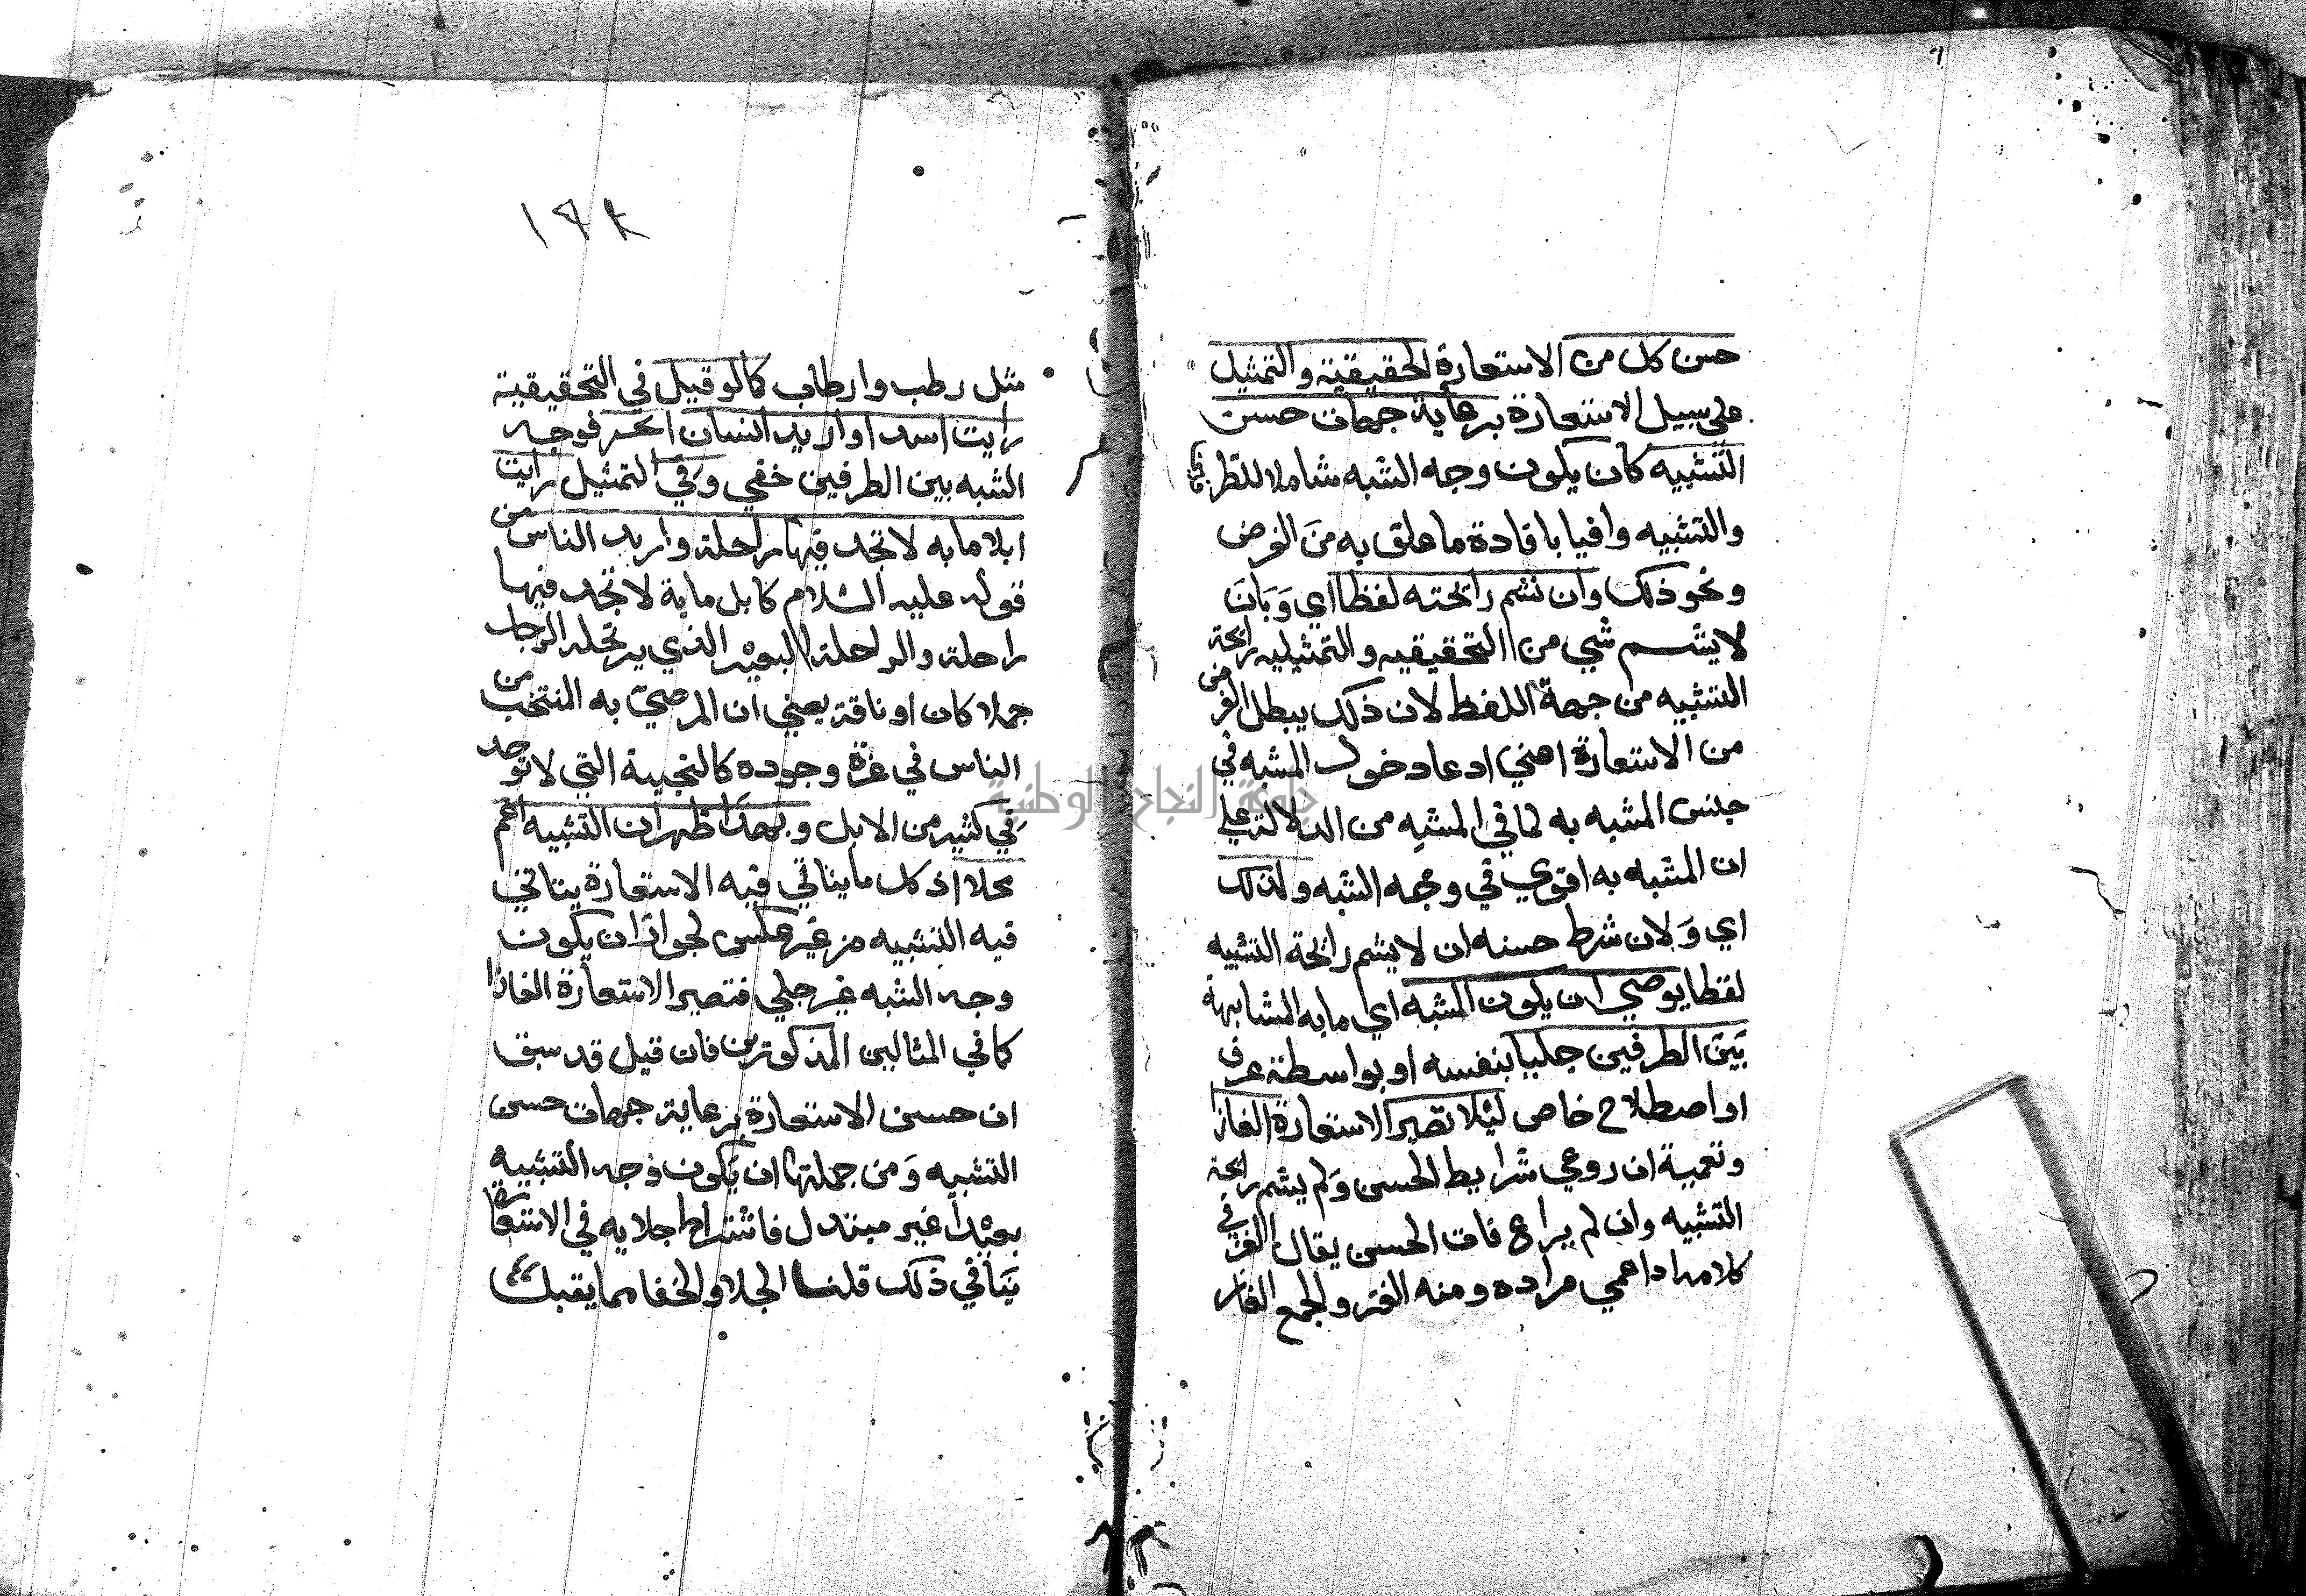 حسن كل من الاستعارة الحقيقية والتمثيل
على سبيل الاستعارة برعاية جهات حسن
التشبيه كان يكون وجه الشبه شاملا للطرفين
والتشبيه وافيا بافادة ما علق به من الغرض
ونحو ذلك وان تشم رايحته لفظا اي وبان
لا يشم شي من التحقيقيه والتمثيليه رايحة
التشبيه من جهة اللفظ لان ذلك يبطل الغرض
من الاستعارة اعني ادعا دخول المشبه في
جنس المشبه به لما في المشبه من الدلالة على
ان المشبه به اقوي في وجه الشبه ولذلك
اي ولان شرط حسنه ان لا يشم رايحة التشبيه
لفظا يوصي ان يكون المشبه اي ما به المشابهة
بين الطرفين جليا بنفسه او بواسطة عرف
او اصطلاح خاص ليلا تصير الاستعارة الغاز
وتعمية ان روعي شرايط الحسن ولم يشم رايحة
التشبيه وان لم يراع فات الحسن يقال الغز في
كلامه اذا عمي مراده ومنه الغز والجمع الغاز
١٩٨
مثل رطب وارطاب كما لو قيل في التحقيقية
رايت اسدا واريد انسان ابخر فوجه
الشبه بين الطرفين خفي وفي التمثيل رايت
ابلا مايه لا تجد فيها راحلة واريد الناس من
قوله عليه السلام كابل ماية لا تجد فيها
راحلة والراحلة البعير الذي يرتحله الرجل
جملا كان او ناقة يعني ان المرضي به المنتخب من
الناس في عزة وجوده كالنجيبة التي لا توجد
في كثير من الابل وبهذا ظهر ان التشبيه اعم
محلا اذ كل ما يتاتي فيه الاستعارة يتاتي
فيه التشبيه من غير عكس لجواز ان يكون
وجه الشبه غير جلي فتصير الاستعارة الغازا
كما في المثالين المذكورين فان قيل قد سبق
ان حسن الاستعارة برعاية جهات حسن
التشبيه ومن جملتها ان يكون وجه التشبيه
بعيدا غير مبتذل فاشتراط جلايه في الاستعارة
ينافي ذلك قلنا الجلا والخفا مما يقبل
جامعة النجاح الوطنية